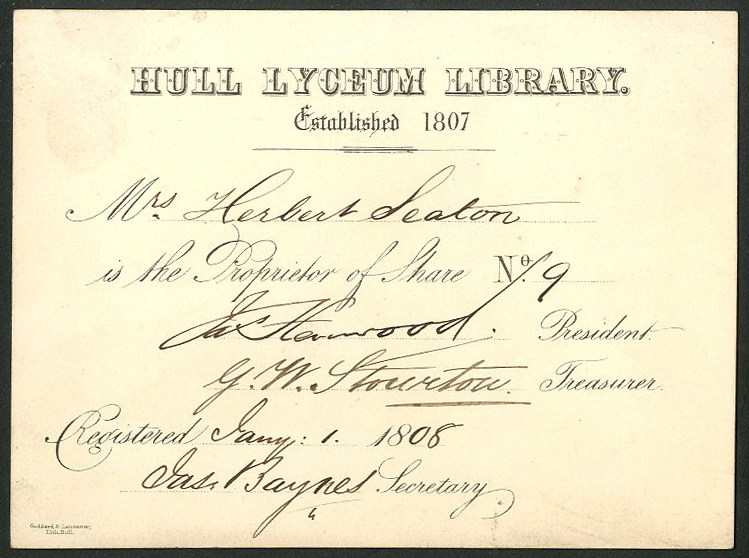 HULL LYCEUM LIBRARY.
Established 1807
Mrs. Herbert Seaton
is the Proprietor of Share No. 19
Jas. Henwood. President.
G. W. Stourton. Treasurer.
Registered Jany: 1. 1808
Jas. Baynes Secretary
Goddard & Lancaster,
Lith. Hull.